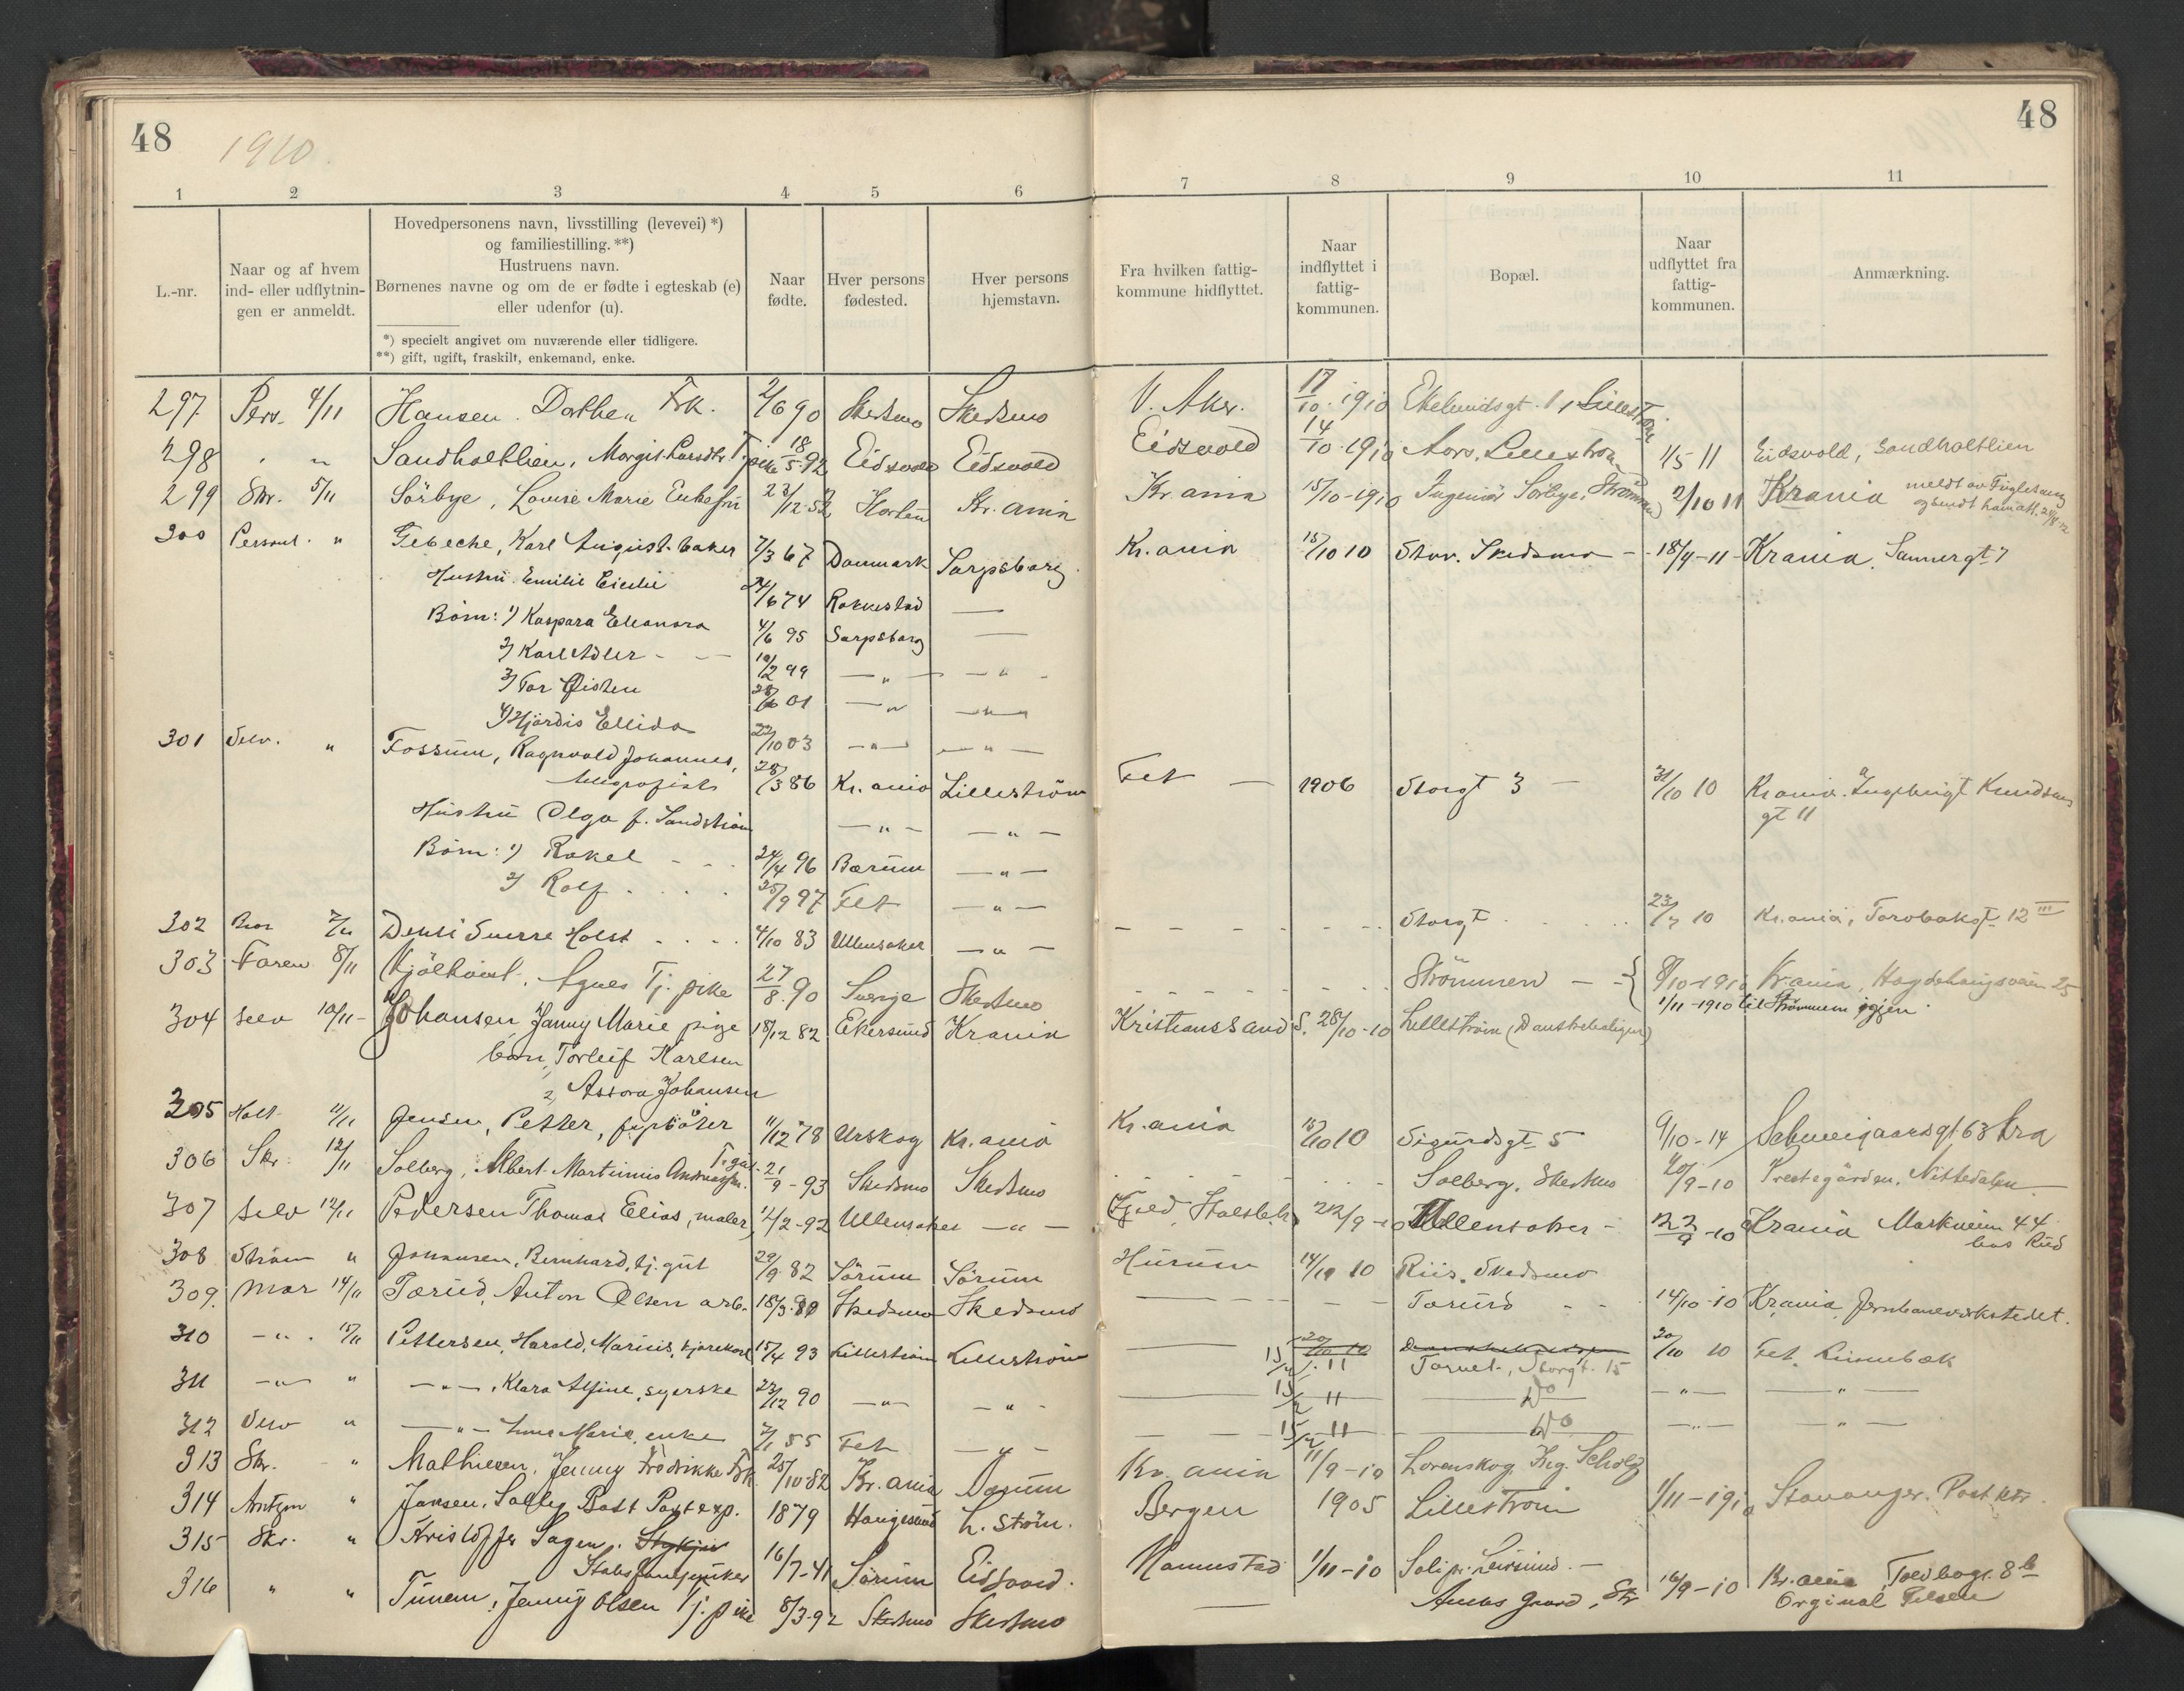 48 1910. 48
1 2 3 4 5 6 7 8 9 10 11
L.-nr.
Naar og af hvem
ind- eller udflytnin-
gen er anmeldt.
Hovedpersonens navn, livsstilling (levevei) *)
og familiestilling. **)
Hustruens navn.
Børnenes navne og om de er fødte i egteskab (e)
eller udenfor (u).
*) specielt angivet om nuværende eller tidligere.
**) gift, ugift, fraskilt, enkemand, enke.
Naar
fødte.
Hver persons
fødested.
Hver persons
hjemstavn.
Fra hvilken fattig-
kommune hidflyttet.
Naar
indflyttet i
fattig-
kommunen.
Bopæl.
Naar
udflyttet fra
fattig-
kommunen.
Anmærkning.
297 Pers. 4/11 Hansen. Dorthea Frk. 2/6 90 Skedsmo Skedsmo V. Aker. 17/10 1910 Ekelundsgt. 1, Lillestrøm
298 " " Sandholtlien, Margit Larsdtr. Tj. pike 18/5 92 Eidsvold Eidsvold Eidsvold 14/10 1910 Lillestrøm 1/5 11 Eidsvold, Sandholtlien
299 Skr. 5/11 Sörbye, Louise Marie Enkefru 23/12 52 Horten Kr.ania Kr ania 15/10-1910 Ingeniör Sörbye, Strömmen 2/10 11 Krania meldt av Fuglesang
300 Personl. " Gebeche, Karl August. baker 7/3 67 Danmark Sarpsborg Kr. ania 15/10 10 Stav. Skedsmo - 18/4-11 - Krania. Sannergt 7
Hustru Emilie Cicilie 24/6 74 Rakkestad —
Börn: 1) Kaspara Eleonora 4/6 95 Sarpsborg —
2) Karl Adler - — 10/2 99 — " — — " -
3) Tor Øisten 28/6 01 — " — " —
4) Hjördis Ellida 22/10 03 — " — — " —
301 Selv. " Fossum, Ragnvald Johannes,
telegrafist 28/3 86 Kr. ania Lilleström Fet — 1906 Storgt 3 — 31/10 10 Kr ania. Ingebrigt Knudsens
gt 11
Hustru Olga f. Sandström — " — — " —
Börn: 1) Rakel - - - 24/4 96 Bærum — " —
2) Rolf . . . . 25/9 97 Fet — " —
302 Bror 7/11 Sverre Holst . . . . 4/10 83 Ullensaker — " — Storgt . . . . 10 Kr.ania, 12 III
303 Faren 8/11 Agnes Tj. pike 27/8 90 Sverige Skedsmo Strömmen — - { 8/10-1910 Krania, 25
1/11 -1910 til Strømmen igjen
304 Selv 10/11 - Johansen Jenny Marie pige 18/12 82 Ekersund Krania Kristianssand S. 28/10-10 Lilleström
barn, Torleif Karlsen
2, Assora Johansen
305 Holt 11/11 Jensen, Petter, fyrböter 11/12 78 Urskog Kr. ania Kr. ania 10 Sigurdsgt 5 9/10-14 Schweigaardsgt 63 Kra
306 Skr. 12/11 Solberg, Albert Martinius Andreassen. Tj. gut. 21/9 - 93 Skedsmo Skedsmo Solberg, Skedsmo 20/9-10 Prestegården. Nittedalen
307 Selv 12/11 Pedersen Thomas Elias, maler, 12/2-92 Ullensaker — " — 22/9-10 Ullensaker - 22/9-10 Krania Markveien 44
hos Rud
308 Ström " Johansen, Bernhard, tj. gut 29/9 82 Sörum Sörum Hurum 14/10 10 Riis, Skedsmo
309. Mor 14/11 Tærud, Anton Olsen arb. 18/3 90 Skedsmo Skedsmo Tærud - - 14/10-10 Krania Jernbaneverkstedet.
310 — " . 15/11 Pettersen, Harald, Marius, kjørekarl 15/4 93 Lillestrøm Lillestrøm 11 Tærvet, Storgt. 15 20/10 10 Fet. Linnebæk
311 — " — " — " —, Klara Alfine, syerske 23/12 90 — " — — " - 11 Do — " — — " —
312 Selv " — " — Anne Marie, enke 55 Fet — " — 11 Do — " — — " —
313 Skr. - " Mathiesen, Jenny Fredrikke Frk. 25/10-82 Kr. ania Kr. ania 11/9-10 Lorenskog Ing. Scholz
314 Amtzen " Jansen, Postexp. 1879 Haugesund L. ström. Bergen 1905 Lillestrøm 1/11-1910 Stavanger. Post
315 Skr. " Kristoffer Sagen.
16/7-41 Sörum Eidsvold. Nannestad 1/11-10 —
316 " " Tunem, Jenny Olsen Tj. pike 8/3-92 Skedsmo Skedsmo — Aaraas Gaard, Skr 16/9-10 Kr. ania Toldbogt. 8 b
Orginal Pilsen